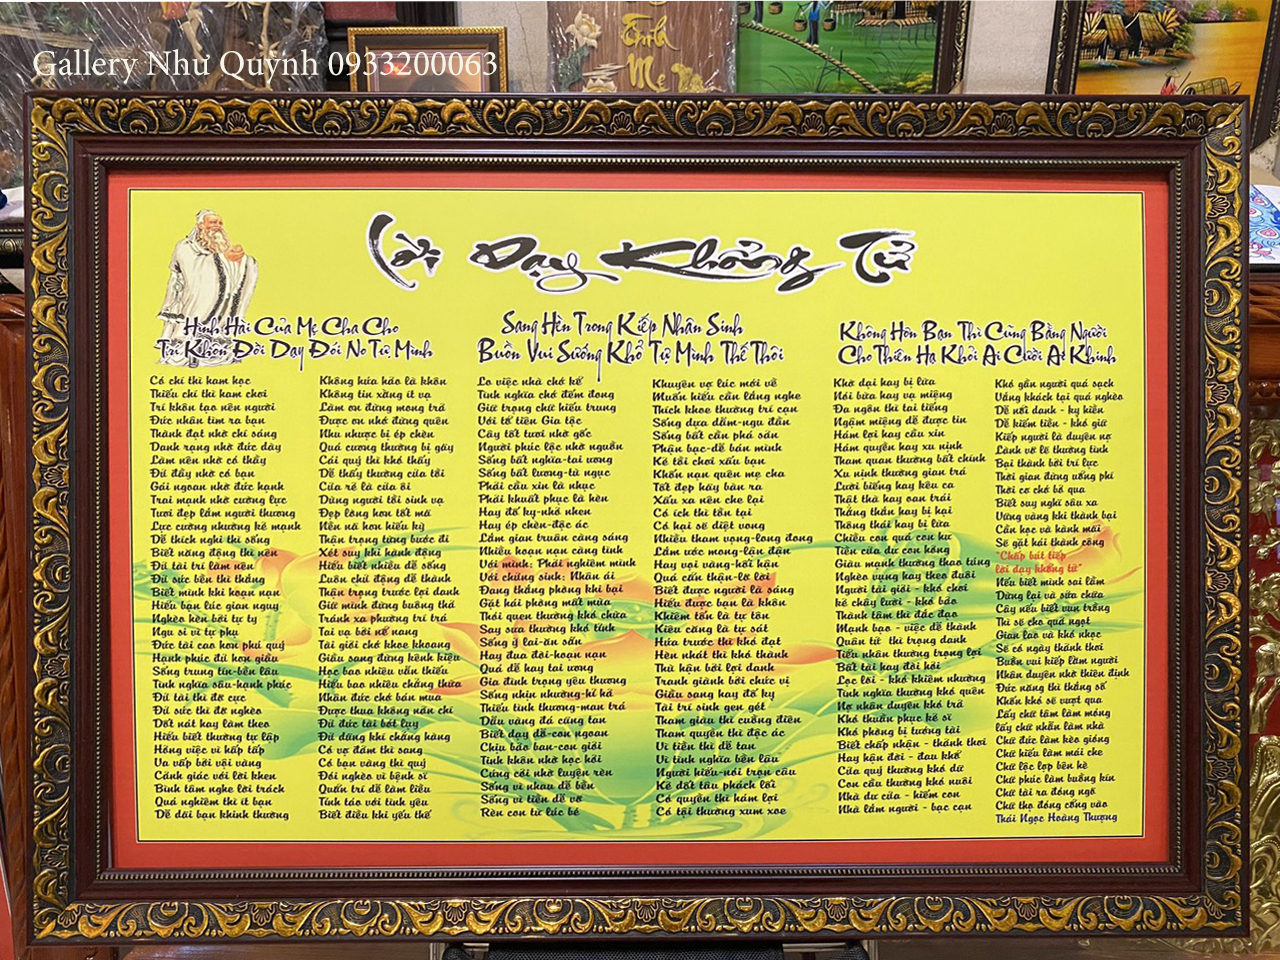 Gallery Như Quỳnh 0933200063
Tình
Mẹ
Lời Dạy Khổng Tử
Hình Hài Của Mẹ Cha Cho
Trí Khôn Đời Dạy Đói No Tự Mình
Có chí thì ham học
Thiếu chí thì ham chơi
Trí khôn tạo nên người
Đức nhân tìm ra bạn
Thành đạt nhờ chí sáng
Danh rạng nhờ đức dày
Làm nên nhờ có thầy
Đủ đầy nhờ có bạn
Gái ngoan nhờ đức hạnh
Trai mạnh nhờ cường lực
Tươi đẹp lắm người thương
Lực cường nhường kẻ mạnh
Dễ thích nghi thì sống
Biết năng động thì nên
Đủ tài trí làm nên
Đủ sức bền thì thắng
Biết mình khi hoạn nạn
Hiểu bạn lúc gian nguy
Nghèo hèn bởi tự ty
Ngu si vì tự phụ
Đức tài cao hơn phú quý
Hạnh phúc đủ hơn giầu
Sống trung tín-bền lâu
Tình nghĩa sâu-hạnh phúc
Đủ tài thì đỡ cực
Đủ sức thì đỡ nghèo
Dốt nát hay làm theo
Hiểu biết thường tự lập
Hỏng việc vì hấp tấp
Va vấp bởi vội vàng
Cảnh giác với lời khen
Bình tâm nghe lời trách
Quá nghiêm thì ít bạn
Dễ dãi bạn khinh thường
Không hứa hão là khôn
Không tin xằng ít vạ
Làm ơn đừng mong trả
Được ơn nhớ đừng quên
Nhu nhược bị ép chèn
Quá cương thường bị gãy
Cái quý thì khó thấy
Dễ thấy thường của tồi
Của rẻ là của ôi
Dùng người tồi sinh vạ
Đẹp lòng hơn tốt mã
Nền nã hơn hiếu kỳ
Thận trọng từng bước đi
Xét suy khi hành động
Hiểu biết nhiều dễ sống
Luôn chủ động dễ thành
Thận trọng trước lợi danh
Giữ mình đừng buông thả
Tránh xa phường trí trá
Tai vạ bởi nể nang
Tài giỏi chớ khoe khoang
Giầu sang đừng kênh kiệu
Học bao nhiêu vẫn thiếu
Hiểu bao nhiêu chẳng thừa
Nhân đức chớ bán mua
Được thua không nản chí
Đủ đức tài bớt lụy
Đủ dũng khí chẳng hàng
Có vợ đảm thì sang
Có bạn vàng thì quý
Đói nghèo vì bệnh sĩ
Quẫn trí dễ làm liều
Tỉnh táo với tình yêu
Biết điều khi yếu thế
Sang Hèn Trong Kiếp Nhân Sinh
Buồn Vui Sướng Khổ Tự Mình Thế Thôi
Lo việc nhà chớ kể
Tình nghĩa chớ đếm đong
Giữ trọng chữ hiếu trung
Với tổ tiên Gia tộc
Cây tốt tươi nhờ gốc
Người phúc lộc nhờ nguồn
Sống bất nghĩa-tai ương
Sống bất lương-tù ngục
Phải cầu xin là nhục
Phải khuất phục là hèn
Hay đố kỵ-nhỏ nhen
Hay ép chèn-độc ác
Lắm gian truân càng sáng
Nhiều hoạn nạn càng tinh
Với mình: Phải nghiêm minh
Với chúng sinh: Nhân ái
Đang thắng phòng khi bại
Gặt hái phòng mất mùa
Thói quen thường khó chừa
Say sưa thường khó tỉnh
Sống ỷ lại-ăn sẵn
Hay đua đòi-hoạn nạn
Quá dễ hay tai ương
Gia đình trọng yêu thương
Sống nhịn nhường-hỉ hả
Thiếu tình thương-man trá
Dẫu vàng đá cũng tan
Biết dạy dỗ-con ngoan
Chịu bảo ban-con giỏi
Tinh khôn nhờ học hỏi
Cứng cỏi nhờ luyện rèn
Sống vì nhau dễ bền
Sống vì tiền dễ vỡ
Rèn con từ lúc bé
Khuyên vợ lúc mới về
Muốn hiểu cần lắng nghe
Thích khoe thường trí cạn
Sống dựa dẫm-ngu đần
Sống bất cần phá sản
Phận bạc-dễ bán mình
Kẻ tồi chơi xấu bạn
Khốn nạn quên mẹ cha
Tốt đẹp hãy bàn ra
Xấu xa nên che lại
Có ích thì tồn tại
Có hại sẽ diệt vong
Nhiều tham vọng-long đong
Lắm ước mong-lận đận
Hay vội vàng-hối hận
Quá cẩn thận-lỡ lời
Biết được người là sáng
Hiểu được bạn là khôn
Khiêm tốn là tự tôn
Kiêu căng là tự sát
Hứa trước thì khó đạt
Hèn nhát thì khó thành
Thù hận bởi lợi danh
Tranh giành bởi chức vị
Giầu sang hay đố kỵ
Tài trí sinh gen gét
Tham giàu thì cuồng điên
Tham quyền thì độc ác
Vì tiền thì dễ tan
Vì tình nghĩa bền lâu
Người hiểu-nói trọn câu
Kẻ dốt tâu phách lối
Có quyền thì hám lợi
Có tội thường xum xoe
Không Hôn Bạn Thì Cũng Bằng Người
Cho Thiên Hạ Khỏi Ai Cười Ai Khinh
Khờ dại hay bị lừa
Nói bừa hay vạ miệng
Đa ngôn thì tai tiếng
Ngậm miệng dễ được tin
Hám lợi hay cầu xin
Hám quyền hay xu nịnh
Tham quan thường bất chính
Xu nịnh thường gian trá
Lười biếng hay kêu ca
Thật thà hay oan trái
Thẳng thắn hay bị hại
Thông thái hay bị lừa
Chiều con quá con hư
Tiền của dư con hỏng
Giàu mạnh thường thao túng
Nghèo vụng hay theo đuôi
Người tài giỏi - khó chơi
kẻ chây lười - khó bảo
Thành tâm thì đắc đạo
Mạnh bạo - việc dễ thành
Quân tử thì trọng danh
Tiểu nhân thường trọng lợi
Bất tài hay đòi hỏi
Lọc lõi - khó khiêm nhường
Tình nghĩa thường khó quên
Nợ nhân duyên khó trả
Khó thuần phục kẻ sĩ
Khó phòng bị tướng tài
Biết chấp nhận - thảnh thơi
Hay hận đời - đau khổ
Của quý thường khó dữ
Con cầu thường khó nuôi
Nhà dư của - hiếm con
Nhà lắm người - bạc cạn
Khó gần người quá sạch
Vắng khách tại quá nghèo
Dễ nổi danh - kỵ kiên
Dễ kiếm tiền - khó giữ
Kiếp người là duyên nợ
Lành vỡ lẽ thường tình
Bại thành bởi trí lực
Thời gian đừng uổng phí
Thời cơ chớ bỏ qua
Biết suy nghĩ sâu xa
Vững vàng khi thành bại
Cần học và hành mãi
Sẽ gặt hái thành công
"Chấp bút tiếp
lời dạy khổng tử"
Nếu biết mình sai lầm
Dừng lại và sửa chữa
Cây nếu biết vun trồng
Thì sẽ cho quả ngọt
Gian lao và khó nhọc
Sẽ có ngày thảnh thơi
Buồn vui kiếp làm người
Nhân duyên nhờ thiên định
Đức năng thì thắng số
Khốn khó sẽ vượt qua
Lấy chữ tâm làm móng
lấy chữ nhẫn làm nhà
Chữ đức làm kèo gióng
Chữ hiếu làm mái che
Chữ lộc lợp bên hè
Chữ phúc làm buồng kín
Chữ tài ra đóng ngõ
Chữ thọ đóng cổng vào
Thái Ngọc Hoàng Thượng